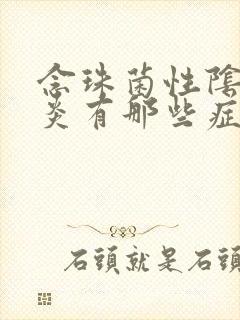 念珠菌性陰
炎有那些症
石頭就是石頭